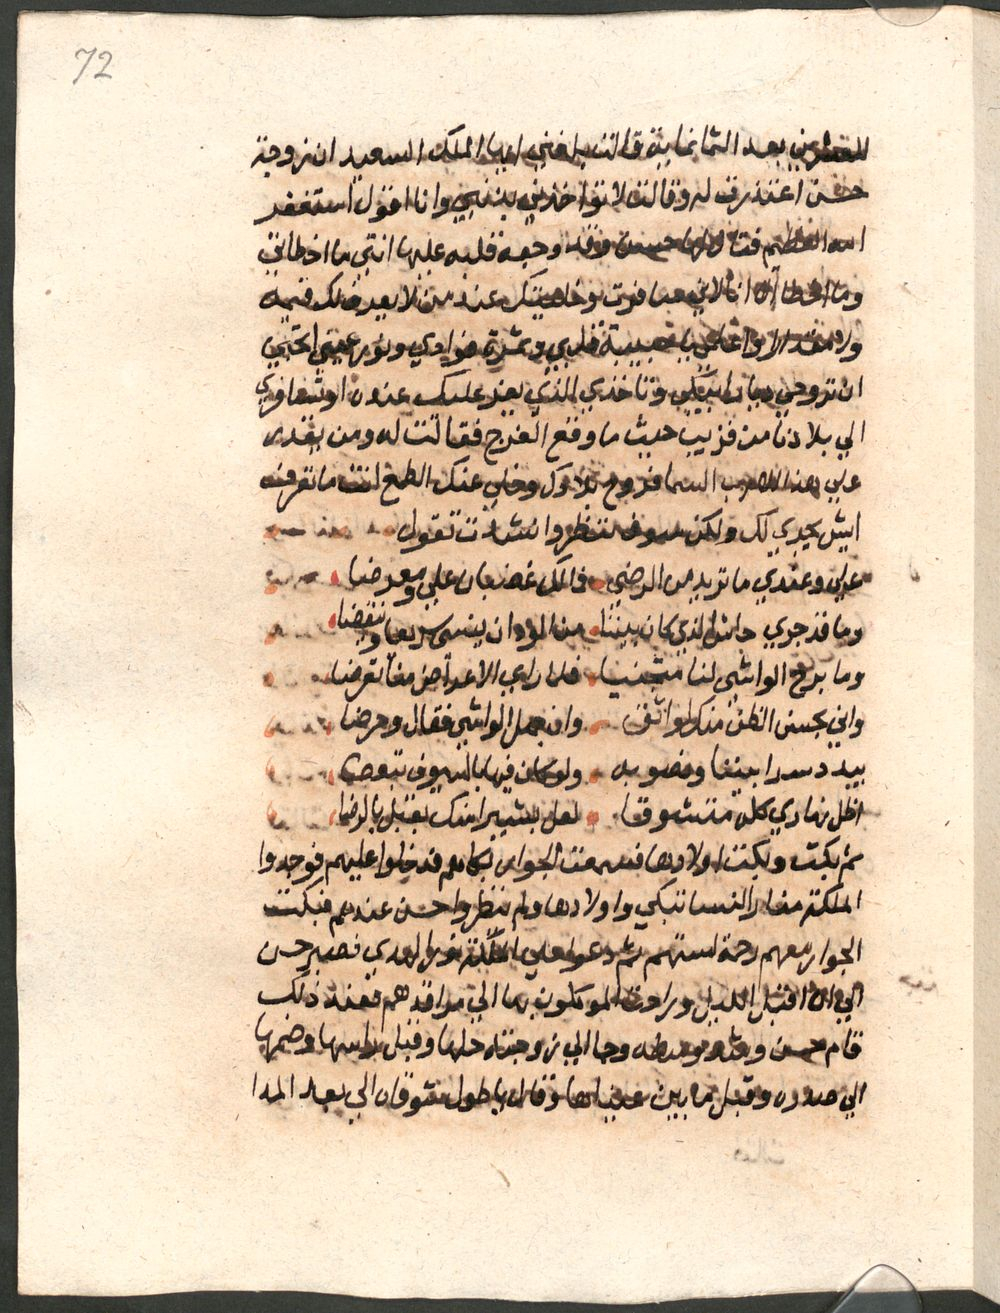 72
العشرين بعد الثمانماية قالت بلغني ايها الملك السعيد ان زوجة
حسن اعتذرت له وقالت لا تواخذني بذنبي وانا اقول استغفر
الله العظيم فقال لها حسن وقد وجعه قلبه عليها انتي ما اخطاتي
وما اخطا الا انا لاني سافرت وخليتك عند من لا يعرف لك قيمة
ولا مقدار واعلمي يا حبيبة قلبي وثمرة فوادي ونور عيني اتحبي
ان تروحي ديار ابيكي وتاخذي الذي يعز عليك عنده او تسافري
الي بلادنا من قريب حيث ما وقع الفرج فقالت له ومن يقدر
علي هذا الا رب السما فروح بلادك وخلي عنك الطمع انت ما تعرف
ايش يجري لك ولكن سوف تنظر وانشدت تقول
علي وعندي ما تريد من الرضي فمالك غضبان علي ومعرضا
وما قد جري حاشا الذي كان بيننا من الود ان ينسي سريعا وينقضا
وما برح الواشي لنا متجنبا فلما راي الاعراض منا تعرضا
واني بحسن الظن منك لواثق وان جهل الواشي فقال وحرضا
بيدد سرا بيننا ونصونه ولو كان فيها بالسيوف تبعضا
اظل نهاري كله متشوقا لعل بشيرا منك يقبل بالرضا
ثم بكت وبكت اولادها فسمعت الجوار بكاهم فدخلوا عليهم فوجدوا
الملكة منار النسا تبكي واولادها ولم ينظروا حسن عندهم فبكت
الجوار معهم رحمة لهم ثم دعوا علي الملكة نور الهدي فصبر حسن
الي ان اقبل الليل وراحت الموكلون بها الي مراقدهم فعند ذلك
قام حسن وشد وسطه وجا الي زوجته حلها وقبل راسها وضمها
الي صدره وقبل ما بين عينيها وقال يا طول شوقاه الي بعد المدا
فقالت